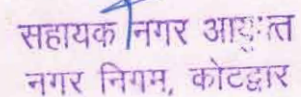 सहायक नगर आयुक्त
नगर निगम, कोटद्वार